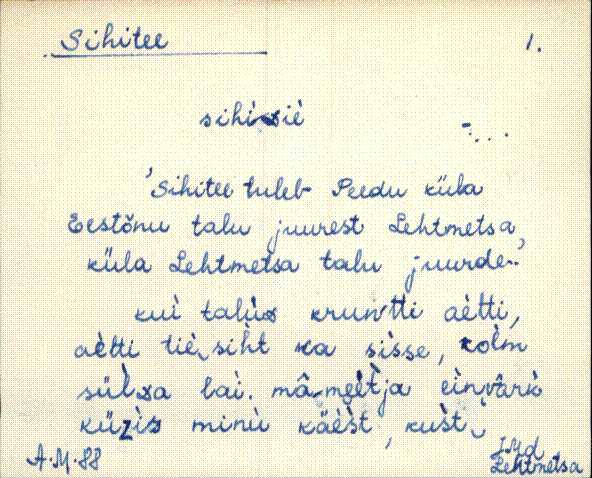 Sihitee 1.
sihi
'Sihitee tuleb Peedu küla
Eestõnu talu juurest Lehtmetsa
küla Lehtmetsa talu juurde.'
kuì talùs kruntti aètti,
aètti tiè siht ka sìsse, kolm
sülda lai. mâmeètja eìnvärk
küzis minù käèst, kust
A.M.88 JMd
Lehtmetsa